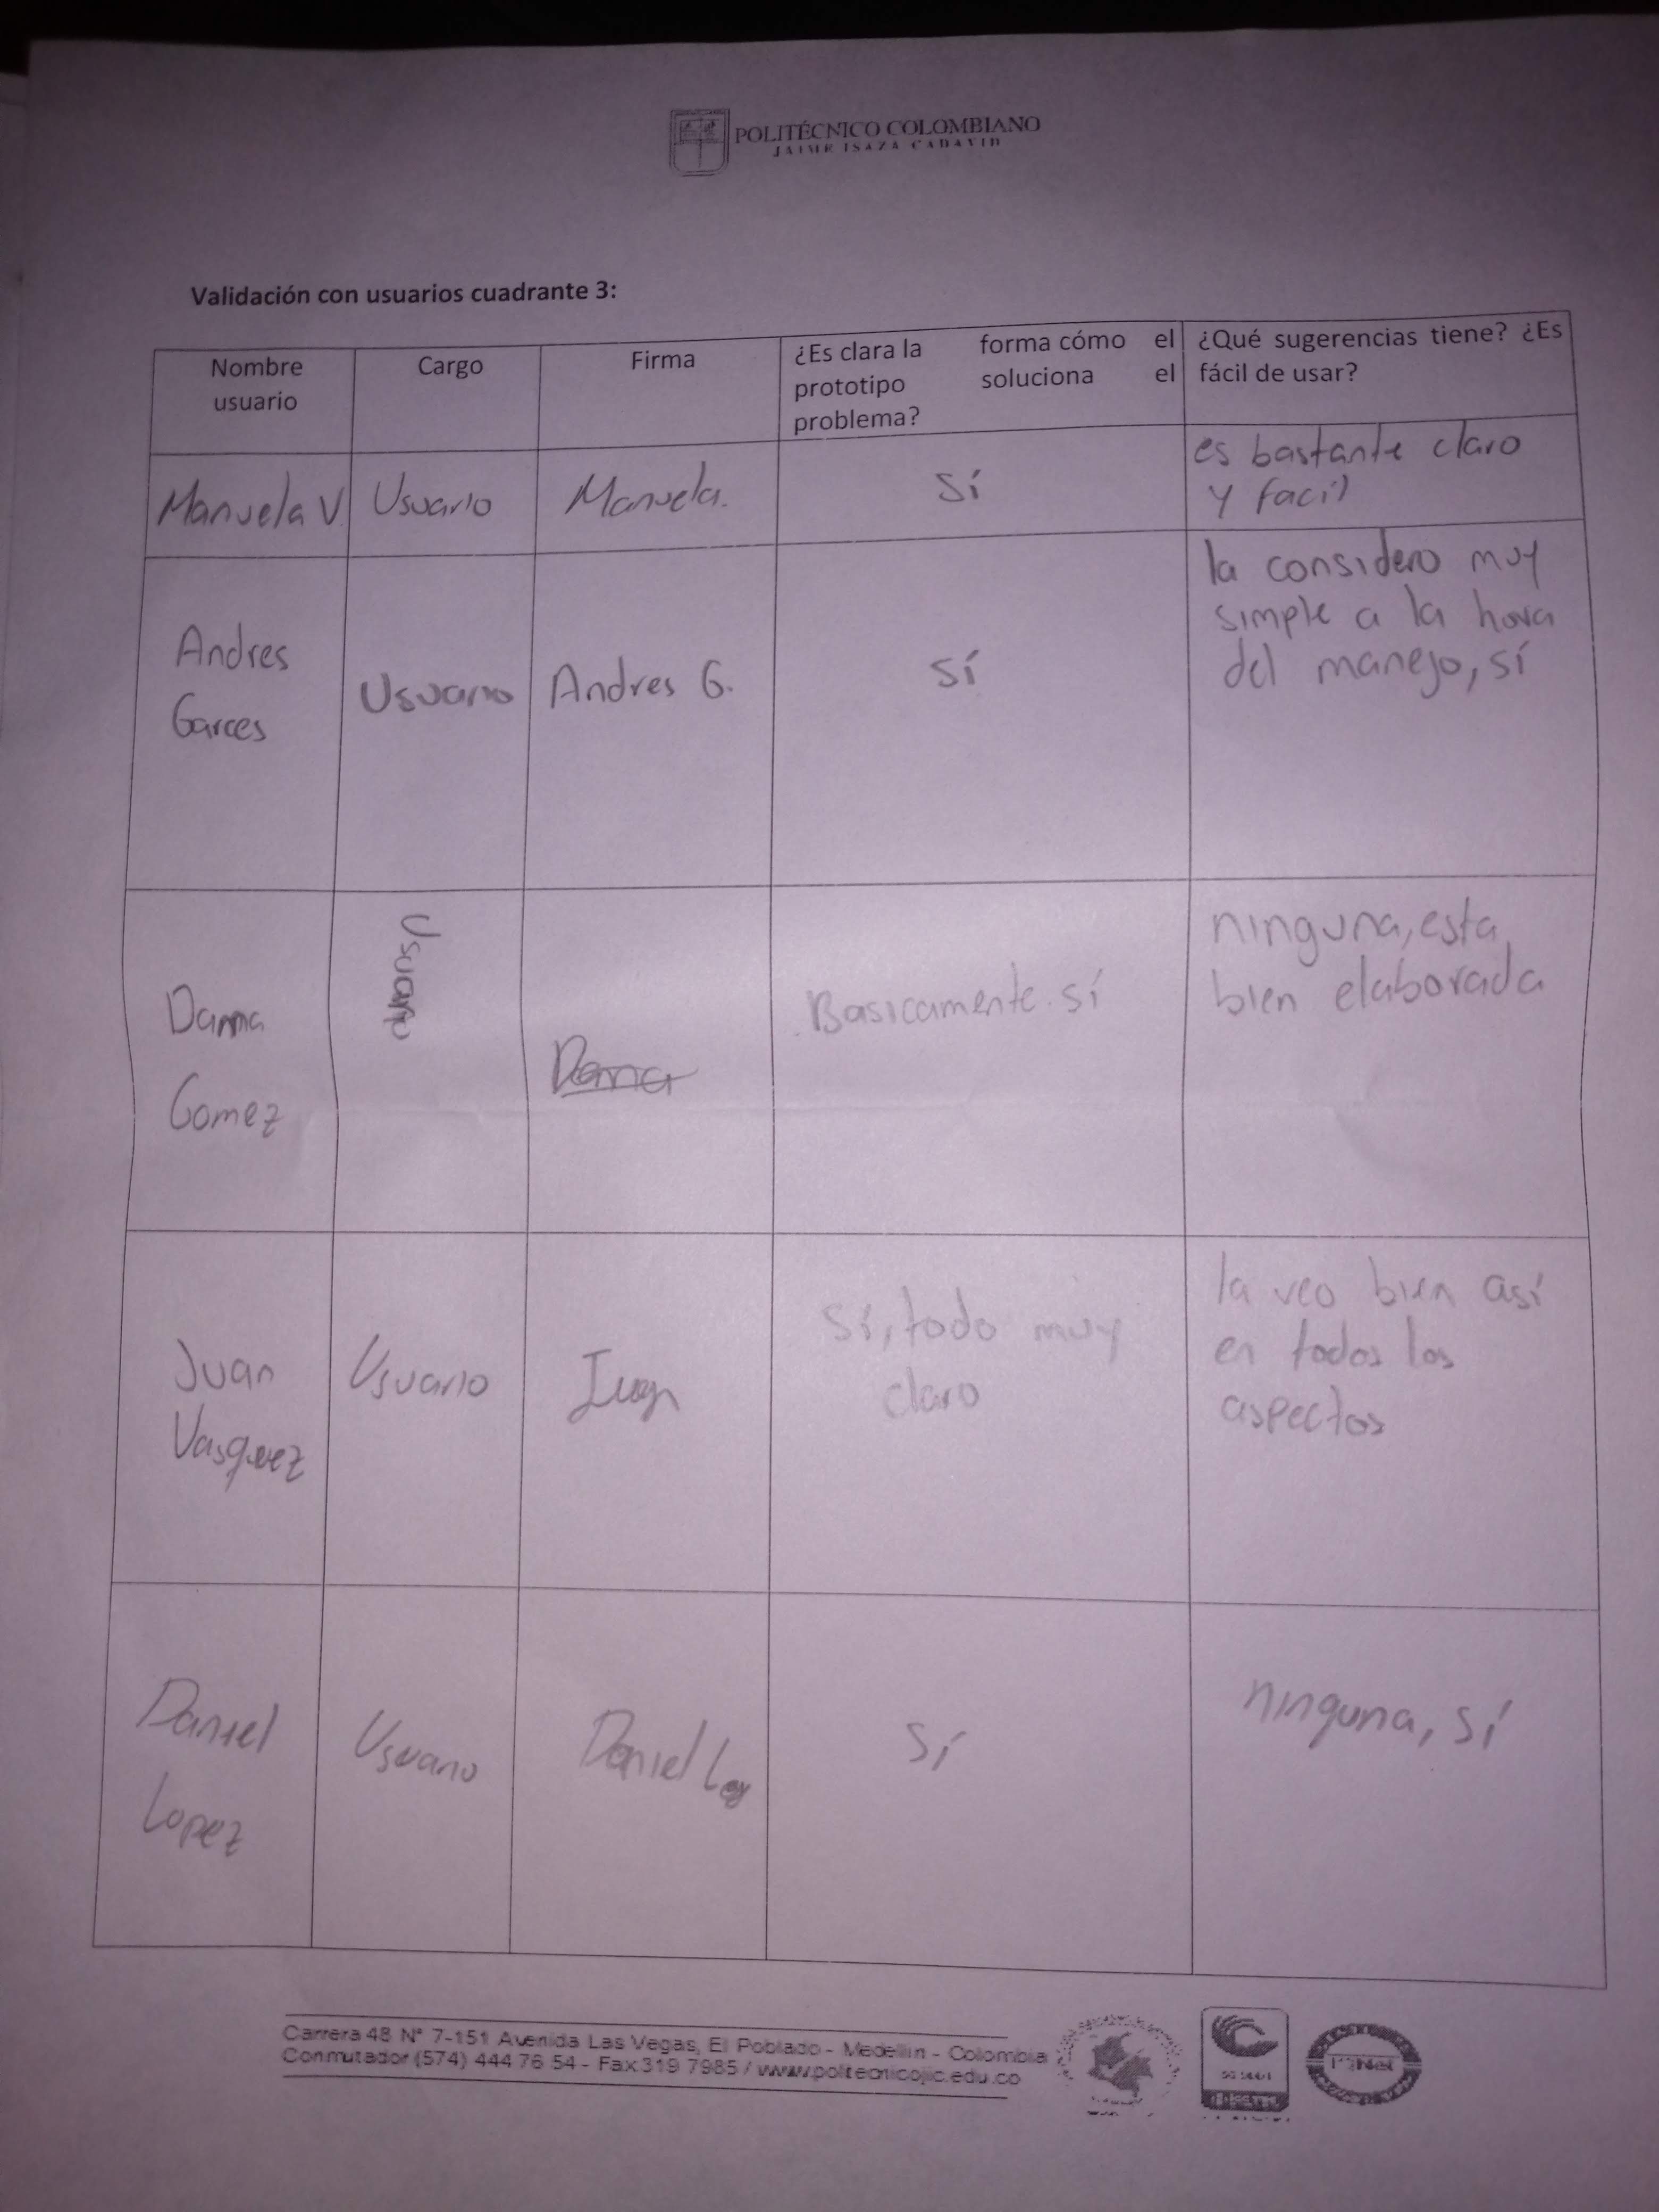 POLITÉCNICO COLOMBIANO
JAIME ISAZA CADAVID
Validación con usuarios cuadrante 3:
Nombre usuario
Cargo
Firma
¿Es clara la forma cómo el
prototipo soluciona el
problema?
¿Qué sugerencias tiene? ¿Es
fácil de usar?
Manuela V.
Usuario
Manuela.
Sí
es bastante claro
y facil
Andres
Garces
Usuario
Andres G.
Sí
la considero muy
simple a la hora
del manejo, sí
Danna
Gomez
Usuario
Danna
Basicamente sí
ninguna, esta
bien elaborada
Juan
Vasquez
Usuario
Juan
Sí, todo muy
claro
la veo bien así
en todos los
aspectos
Daniel
Lopez
Usuario
Daniel
Sí
ninguna, sí
Carrera 48 N° 7-151 Avenida Las Vegas, El Poblado - Medellín - Colombia
Conmutador (574) 444 76 54 - Fax 319 7985 / www.politecnicojic.edu.co
IQNet